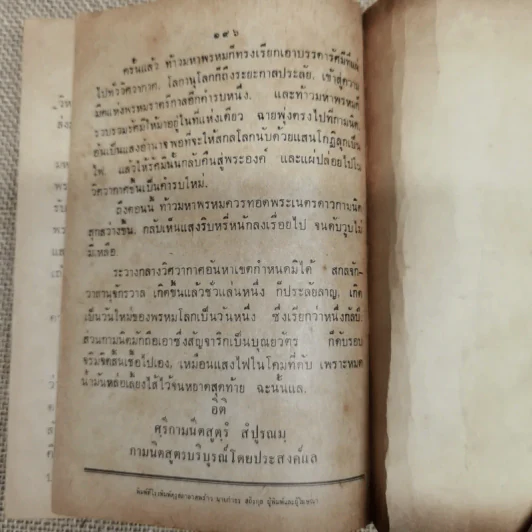 ๑๙๖
ครั้นแล้ว ท้าวมหาพรหมก็ทรงเรียกเอาบรรดารัศมีที่แผ่
ไปทั่วิศวากาศ, โลกานุโลกก็ถึงระยะกาลประลัย, เข้าสู่ความ
มืดแห่งพรหมราตรีกาลอีกคำรบหนึ่ง, และท้าวมหาพรหมก็
รวบรวมรัศมีให้มาอยู่ในที่แห่งเดียว ฉายพุ่งตรงไปที่กามนิต,
อันเป็นแสงอำนาจพอที่จะให้สกลโลกนับด้วยแสนโกฏิลุกเป็น
ไฟ, แล้วให้รัศมีนั้นกลับคืนสู่พระองค์ และแผ่ปล่อยไปใน
วิศวากาศขึ้นเป็นคำรบใหม่.
ถึงตอนนี้ ท้าวมหาพรหมควรทอดพระเนตรดาวกามนิต
ลุกสว่างขึ้น, กลับเห็นแสงริบหรี่หนักลงเรื่อยไป จนดับวูบไม่
มีเหลือ.
ระวางกลางวิศวากาศอันหาเขตกำหนดมิได้ สกลจักร-
วาลานุจักรวาล เกิดขึ้นแล้วชั่วแล่นหนึ่ง ก็ประลัยลาญ, เกิด
เป็นวันใหม่ของพรหมโลกเป็นวันหนึ่ง ซึ่งเรียกว่าหนึ่งกัลป์.
ส่วนกามนิตมักถือเอาซึ่งสัญจาริกเป็นบุณยวัตร ก็ดับรอบ
จริมจิตสิ้นเชื้อไปเอง, เหมือนแสงไฟในโคมที่ดับ เพราะหมด
น้ำมันหล่อเลี้ยงไส้ไว้จนหยาดสุดท้าย ฉะนั้นแล.
อิติ
ศฺรีกามนีตสูตฺรํ สํปูรณมฺ
กามนิตสูตรบริบูรณ์โดยประสงค์แล